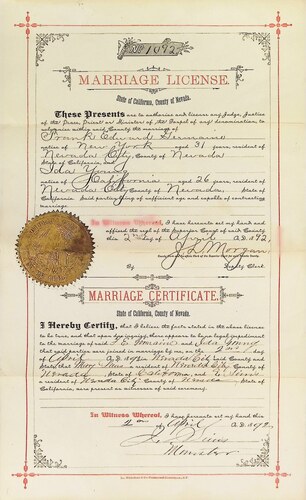 No 1092
MARRIAGE LICENSE.
State of California, County of Nevada.
These Presents are to authorize and license any Judge, Justice
of the Peace, Priest or Minister of the Gospel of any denomination, to
solemnize within said County the marriage of
Frank Edward Germaine
native of New York aged 31 years, resident of
Nevada City, County of Nevada
State of California, and
Ida Young
native of California aged 26 years, resident of
Nevada City, County of Nevada,
State of California. Said parties being of sufficient age and capable of contracting
marriage.
In Witness Whereof, I have hereunto set my hand and
affixed the seal of the Superior Court of said County
this 2nd day of April A.D. 1892,
J. L. Morgan
By Deputy Clerk.
MARRIAGE CERTIFICATE.
State of California, County of Nevada.
I Hereby Certify, that I believe the facts stated in the above license
to be true, and that upon due inquiry, there appears to be no legal impediment
to the marriage of said F. E. Germaine and Ida Young
that said parties were joined in marriage by me, on the 2nd day of
April A.D. 1892 in Nevada City said County and
State; that a resident of Nevada City County of
Nevada State of California, and
a resident of Nevada City County of Nevada State of
California, are present as witnesses of said ceremony.
In Witness Whereof, I have hereunto set my hand this
2nd April A.D. 1892
J. Sims
Minister